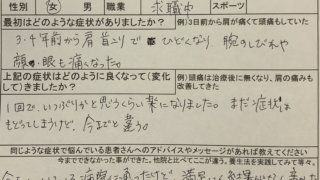 性別 男 女 職業 求職中 スポーツ
最初はどのような症状がありましたか? 例)3日前から肩が痛くて頭痛もしていた
3・4年前から肩首コリで ひどくなり 腕のしびれや
顔・眼も痛くなった。
上記の症状はどのように良くなって(変化して)きましたか? 例)頭痛は治療後に無くなり、肩の痛みも改善してきた
1回で、いつぶりかと思うくらい楽になりました。まだ症状は
もどってしまうけど、今までと違う。
同じような症状で悩んでいる患者さんへのアドバイスやメッセージがあれば教えてください
今までできなかった事ができた。他院と比べてここが違う。養生法を実践してみて等々。